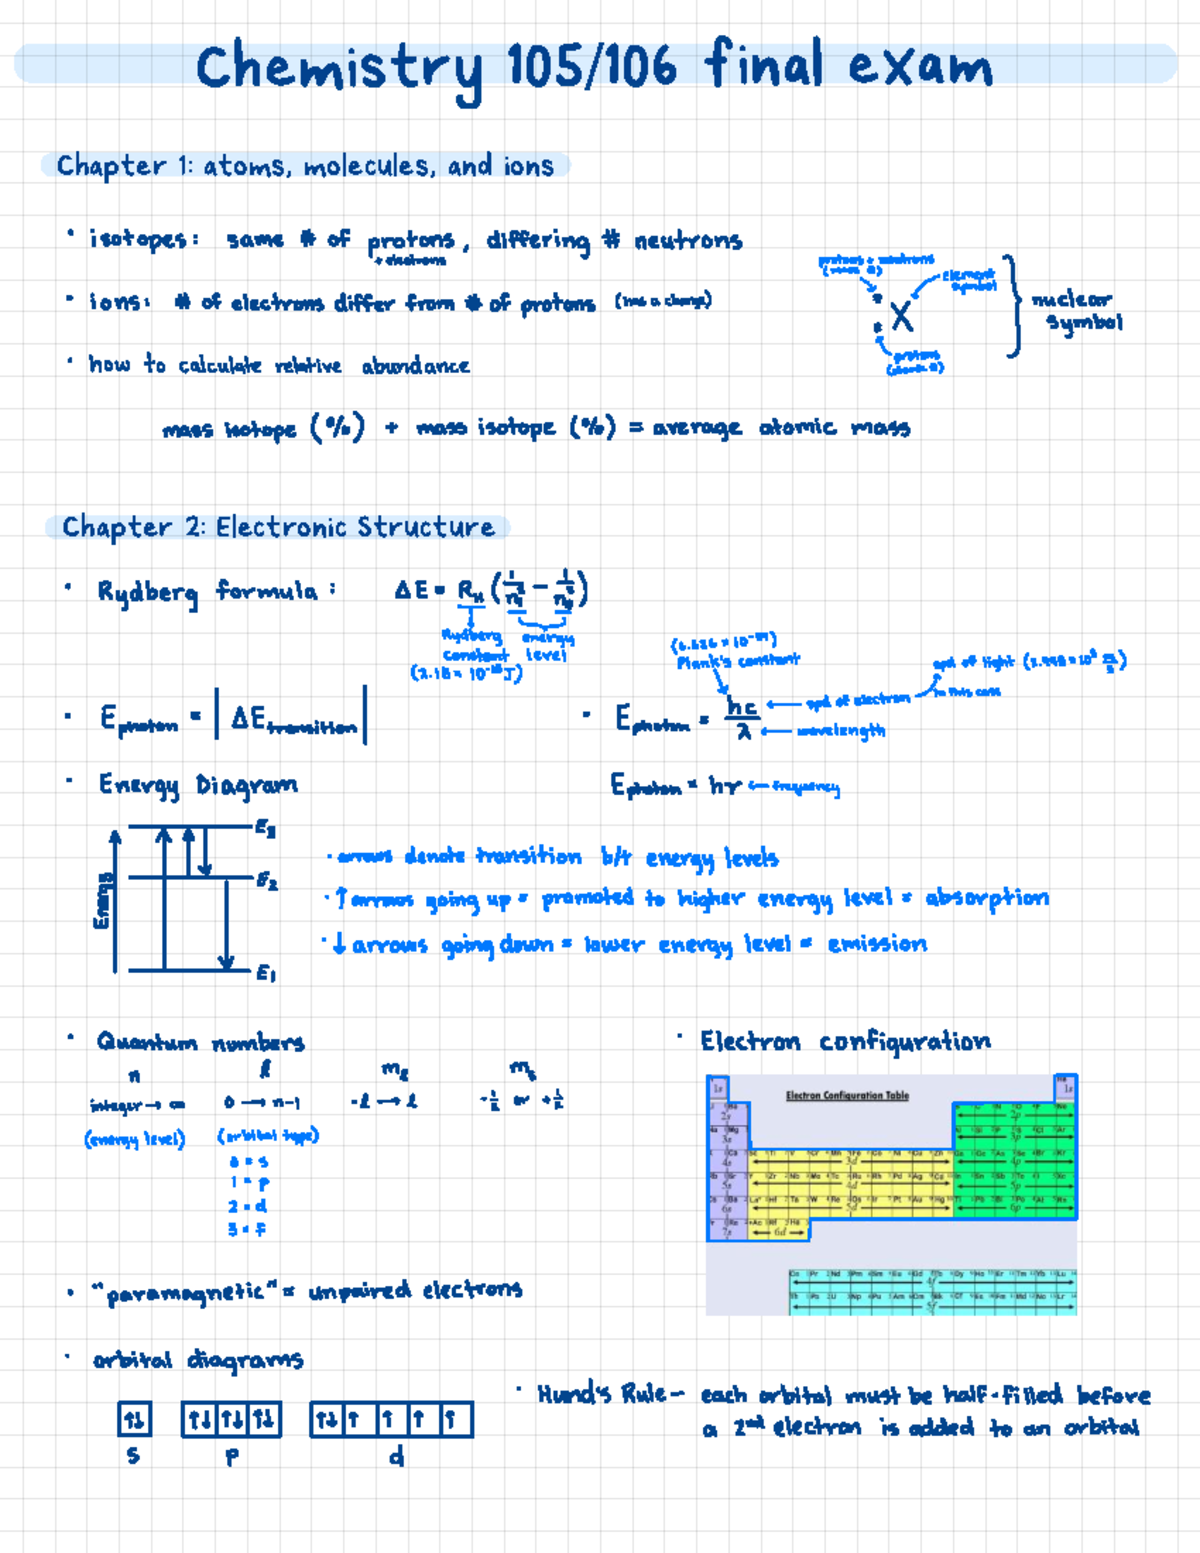 Chemistry 105/106 final exam
Chapter 1: atoms, molecules, and ions
• isotopes: same # of protons, differing # neutrons
+ electrons
• ions: # of electrons differ from # of protons (has a charge)
protons + neutrons
(mass #)
element
symbol
X
protons
nuclear
symbol
• how to calculate relative abundance
mass isotope (%) + mass isotope (%) = average atomic mass
Chapter 2: Electronic Structure
• Rydberg formula: ΔE = R_H (1/n² - 1/n²)
Rydberg
constant
energy
level
• E photon = |ΔE transition|
Plank's constant
• E photon = hc/λ
spd of electron
spd of light
in this case
wavelength
E photon = hν ← frequency
• Energy Diagram
Energy
E3
E2
E1
• arrows denote transition b/t energy levels
• ↑ arrows going up = promoted to higher energy level = absorption
• ↓ arrows going down = lower energy level = emission
• Quantum numbers
n ℓ mℓ ms
integer → ∞ 0 → n-1 -ℓ → ℓ -½ or +½
(energy level) (orbital type)
0 = s
1 = p
2 = d
3 = f
• Electron configuration
Electron Configuration Table
1s 1s
2s 2p
3s 3p
4s 3d 4p
5s 4d 5p
6s 5d 6p
7s 6d
4f
5f
• "paramagnetic" = unpaired electrons
• orbital diagrams
↑↓ ↑↓ ↑↓ ↑↓ ↑↓ ↑ ↑ ↑ ↑
s p d
• Hund's Rule – each orbital must be half-filled before
a 2nd electron is added to an orbital